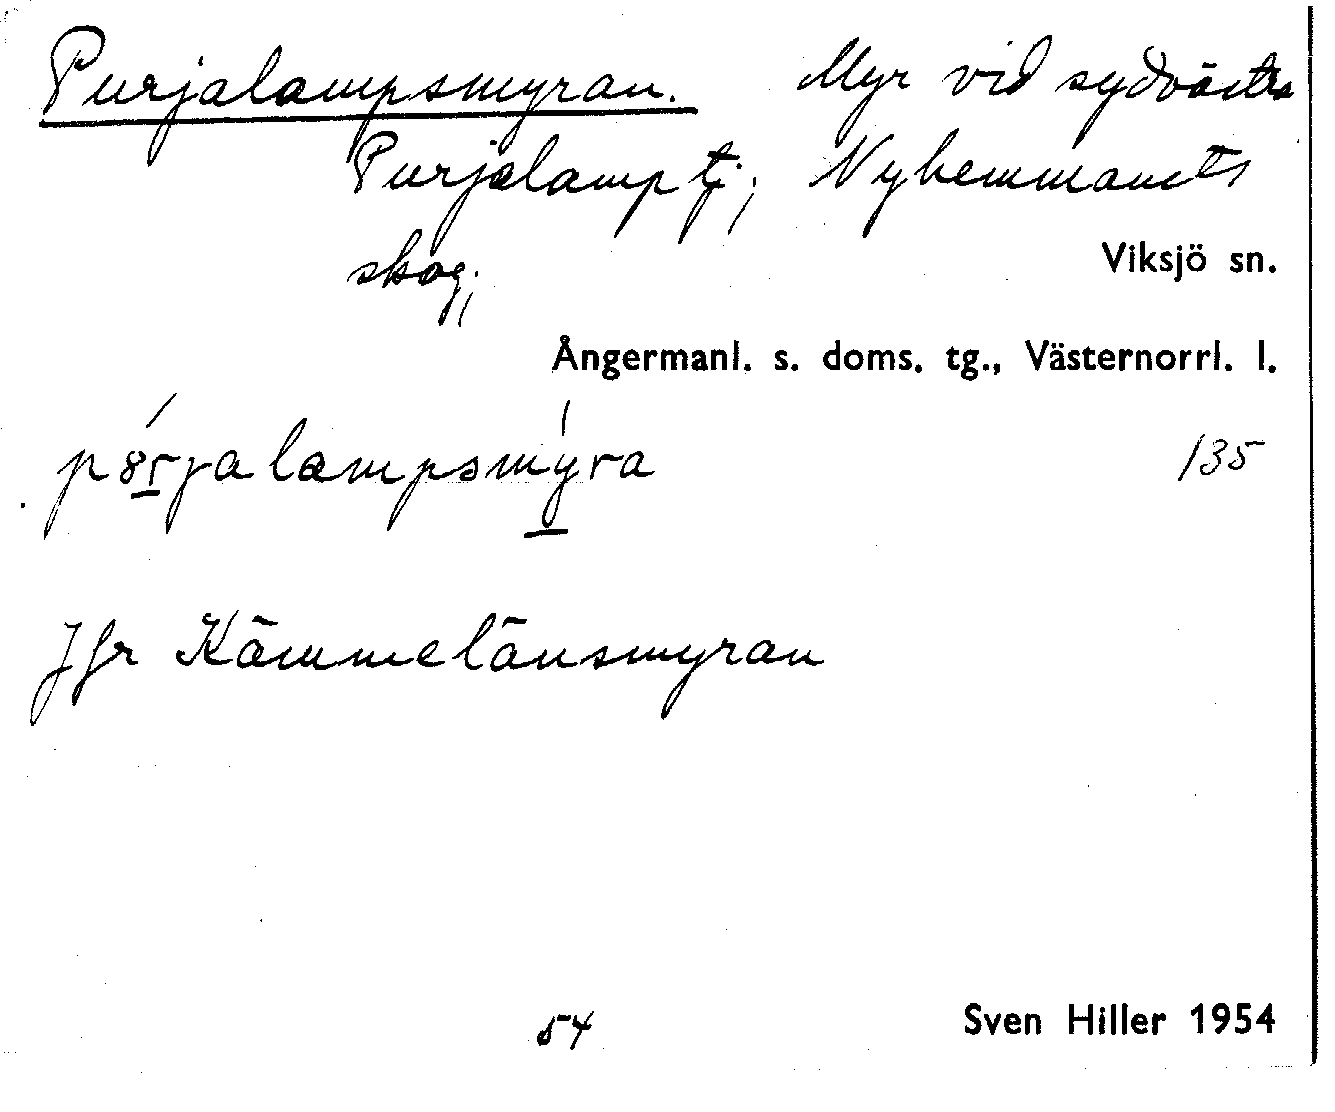 Purjalampsmyran. Myr vid sydvästra
Purjalamp tj; Nyhemmanets
skog;
Viksjö sn.
Ångermanl. s. doms. tg., Västernorrl. l.
pȣ́rjalampsmýra 135
Jfr Kämmelänsmyran
54 Sven Hiller 1954